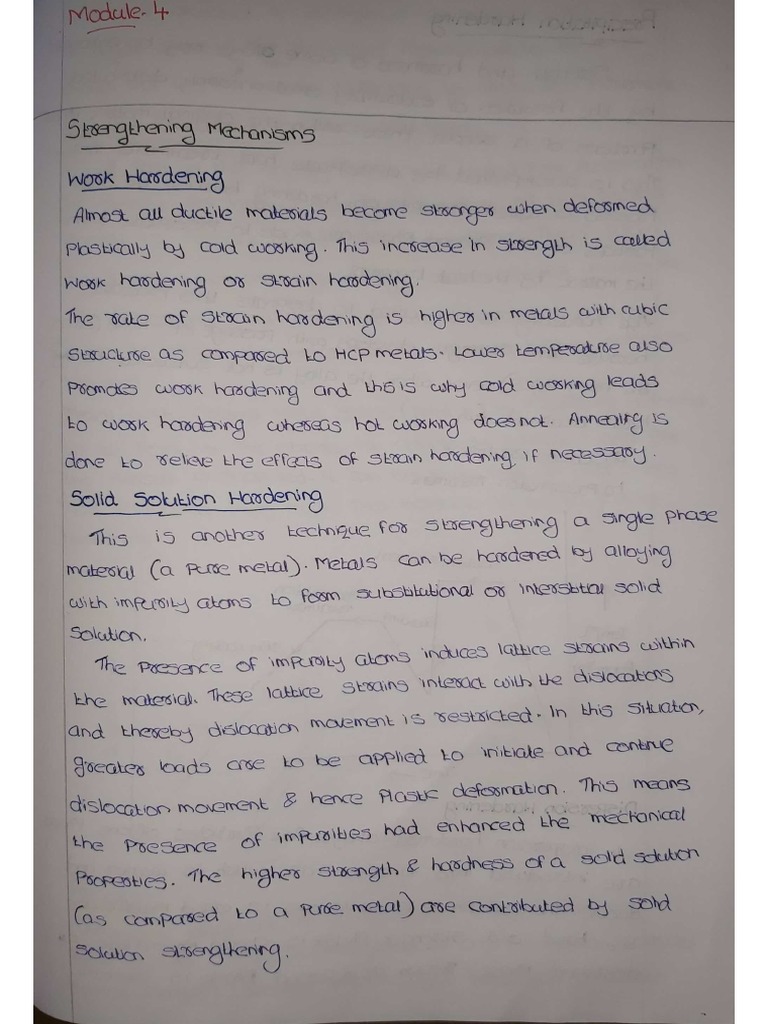 Module-4
Strengthening Mechanisms
Work Hardening
Almost all ductile materials become stronger when deformed
plastically by cold working. This increase in strength is called
work hardening or strain hardening.
The rate of strain hardening is higher in metals with cubic
structure as compared to HCP metals. Lower temperature also
promotes work hardening and this is why cold working leads
to work hardening whereas hot working does not. Annealing is
done to relieve the effects of strain hardening if necessary.
Solid Solution Hardening
This is another technique for strengthening a single phase
material (a pure metal). Metals can be hardened by alloying
with impurity atoms to form substitutional or interstitial solid
solution.
The presence of impurity atoms induces lattice strains within
the material. These lattice strains interact with the dislocations
and thereby dislocation movement is restricted. In this situation,
greater loads are to be applied to initiate and continue
dislocation movement & hence plastic deformation. This means
the presence of impurities had enhanced the mechanical
properties. The higher strength & hardness of a solid solution
(as compared to a pure metal) are contributed by solid
solution strengthening.